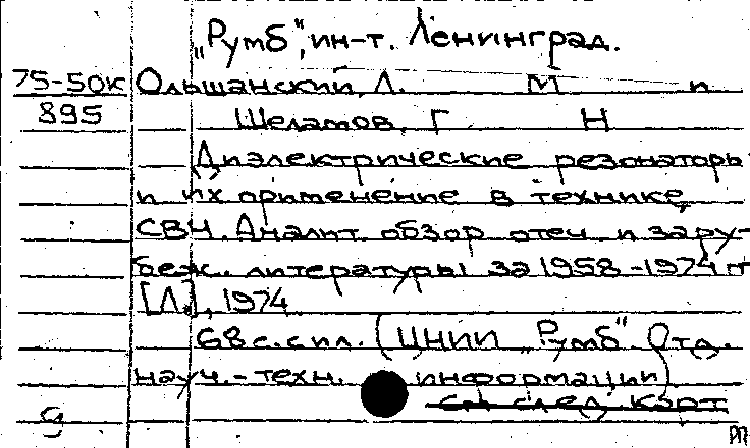 „Румб“, ин-т. Ленинград.
75-50к Ольшанский, Л. М и
895 Шелатов, Г Н
Диэлектрические резонаторы
и их применение в технике
СВЧ. Аналит. обзор отеч. и зару-
беж. литературы за 1958-1974 гг
[Л.], 1974
68 с. с ил. (ЦНИИ „Румб“. Отд.
науч.-техн. информации)
см след карт